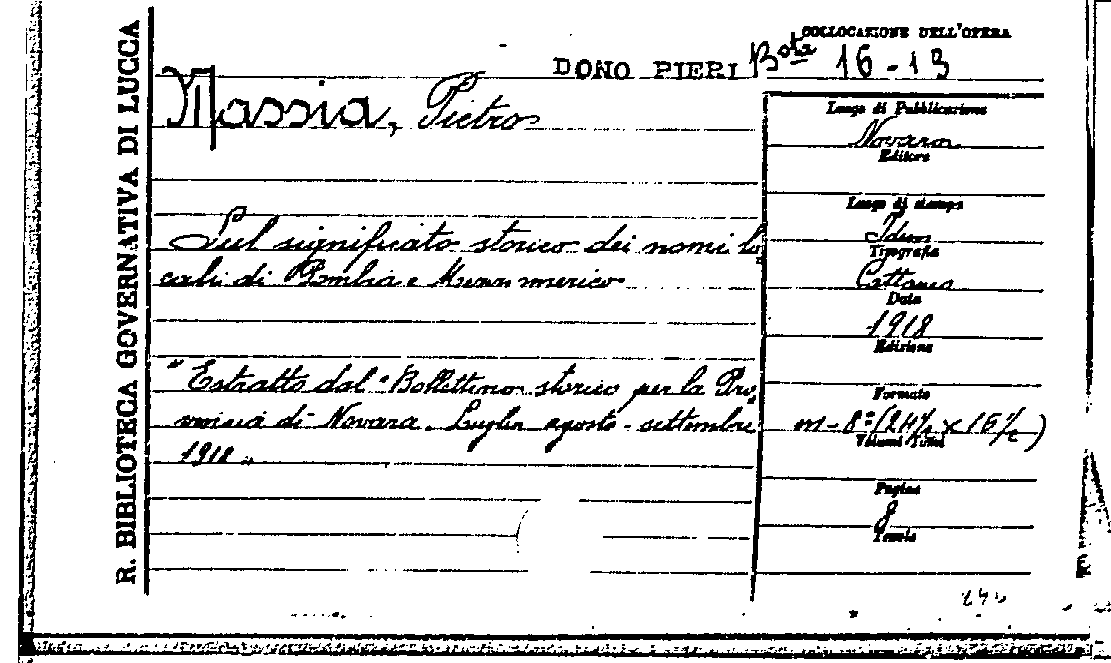 R. BIBLIOTECA GOVERNATIVA DI LUCCA
COLLOCAZIONE DELL'OPERA
DONO PIERI Bta 16-13
Massia, Pietro
Sul significato storico dei nomi lo
cali di Pombia e
"Estratto dal "Bollettino storico per la Pro
vincia di Novara. Luglio agosto - settembre
1918"
Luogo di Pubblicazione
Novara
Editore
Luogo di stampa
Idem
Tipografia
Cattaneo
Data
1918
Edizione
Formato
in-8º (24½ x 16½)
Volumi Tomi
Pagine
8
Tavole